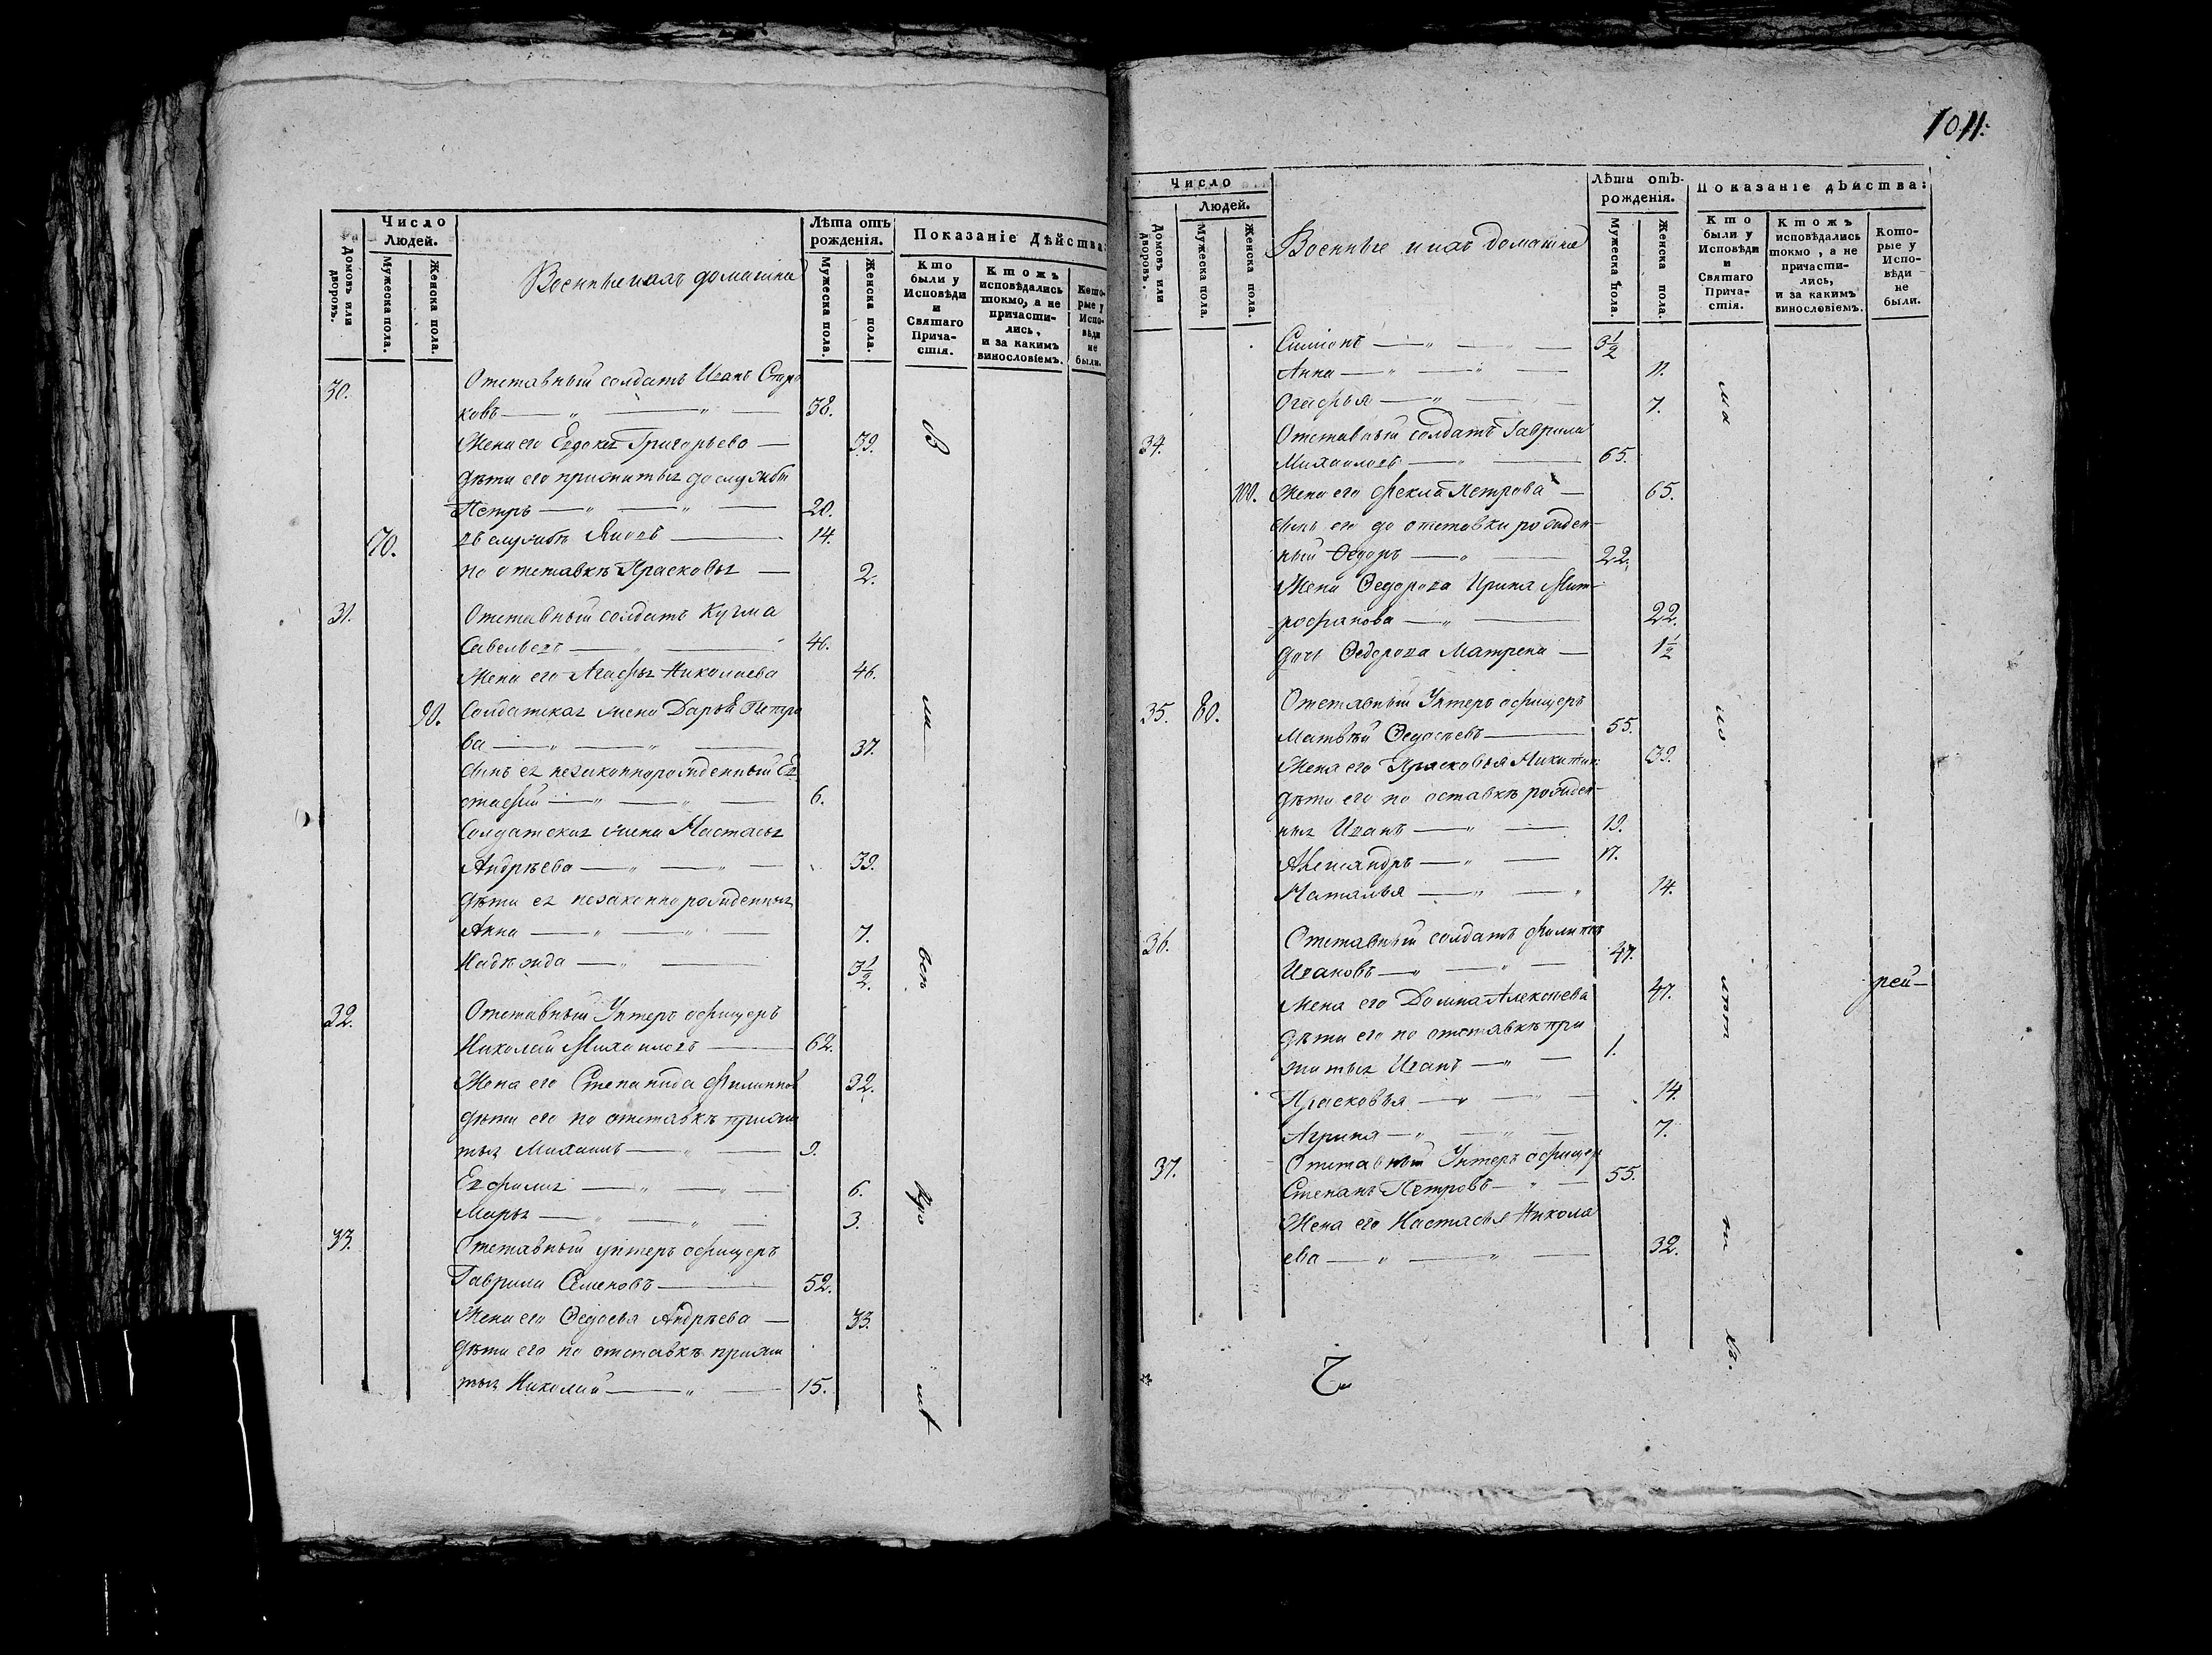 Число
Людей.
Домовъ или дворовъ.
Мужеска пола.
Женска пола.
Военные и ихъ домашніе
Лѣта отъ рожденія.
Мужеска пола.
Женска пола.
Показаніе Дѣйства:
Кто были у Исповѣди и Святаго Причастія.
Ктожъ исповѣдались токмо, а не причастились, и за какимъ винословіемъ.
Которые у Исповѣди не были.
30. Отставный солдатъ Иванъ
ковъ 38.
Жена его Евдокея Григорьева 39.
дѣти его прижитыя до службы
Петръ 20.
70. въ службѣ Яковъ 14.
по отставкѣ Прасковья 2.
31. Отставный солдатъ Кузма
Савельевъ 46.
Жена его Агафья Николаева 46.
90. Солдатская жена Дарья Петро
ва 37.
сынъ ея незаконнорожденный Ев
стафій 6.
Солдатская жена Настасья
Андрѣева 39.
дѣти ея незаконнорожденныя
Анна 7.
Надѣжда 3 1/2.
32. Отставный Унтеръ офицеръ
Николай Михаиловъ 62.
Жена его Степанида Филиппов 32.
дѣти его по отставкѣ прижи
тыя Михаилъ 9.
Евфимия 6.
Марья 3.
33. Отставный унтеръ офицеръ
Гаврила Семеновъ 52.
Жена его Ѳедосья Андрѣева 33.
дѣти его по отставкѣ прижи
тыя Николай 15.
1011.
Число
Людей.
Домовъ или дворовъ.
Мужеска пола.
Женска пола.
Военные и ихъ домашніе
Лѣта отъ рожденія.
Мужеска пола.
Женска пола.
Показаніе дѣйства:
Кто были у Исповѣди и Святаго Причастія.
Ктожъ исповѣдались токмо, а не причастились, и за какимъ винословіемъ.
Которые у Исповѣди не были.
Симіонъ 3 1/2
Анна 11.
Огафья 7.
34. Отставный солдатъ Гаврила
Михаиловъ 65.
100. Жена его Фекла Петрова 65.
сынъ его до отставки рожден-
ный Ѳедоръ 22.
Жена Ѳедорова Ирина Мит-
рофанова 22.
дочь Ѳедорова Матрена 1 1/2
35. 80. Отставный Унтеръ офицеръ
Матвѣй Ѳедосѣевъ 55.
Жена его Прасковья Никитин: 39.
дѣти его по оставкѣ рожден-
ныя Иванъ 19.
Александръ 17.
Наталья 14.
36. Отставный солдатъ Филиппъ
Ивановъ 47.
Жена его Домна Алексѣева 47.
дѣти его по отставкѣ при
житыя Иванъ 1.
Прасковья 14.
Агрипа 7.
37. Отставный Унтеръ офицеръ
Степанъ Петровъ 55.
Жена его Настасья Никола
ева 32.